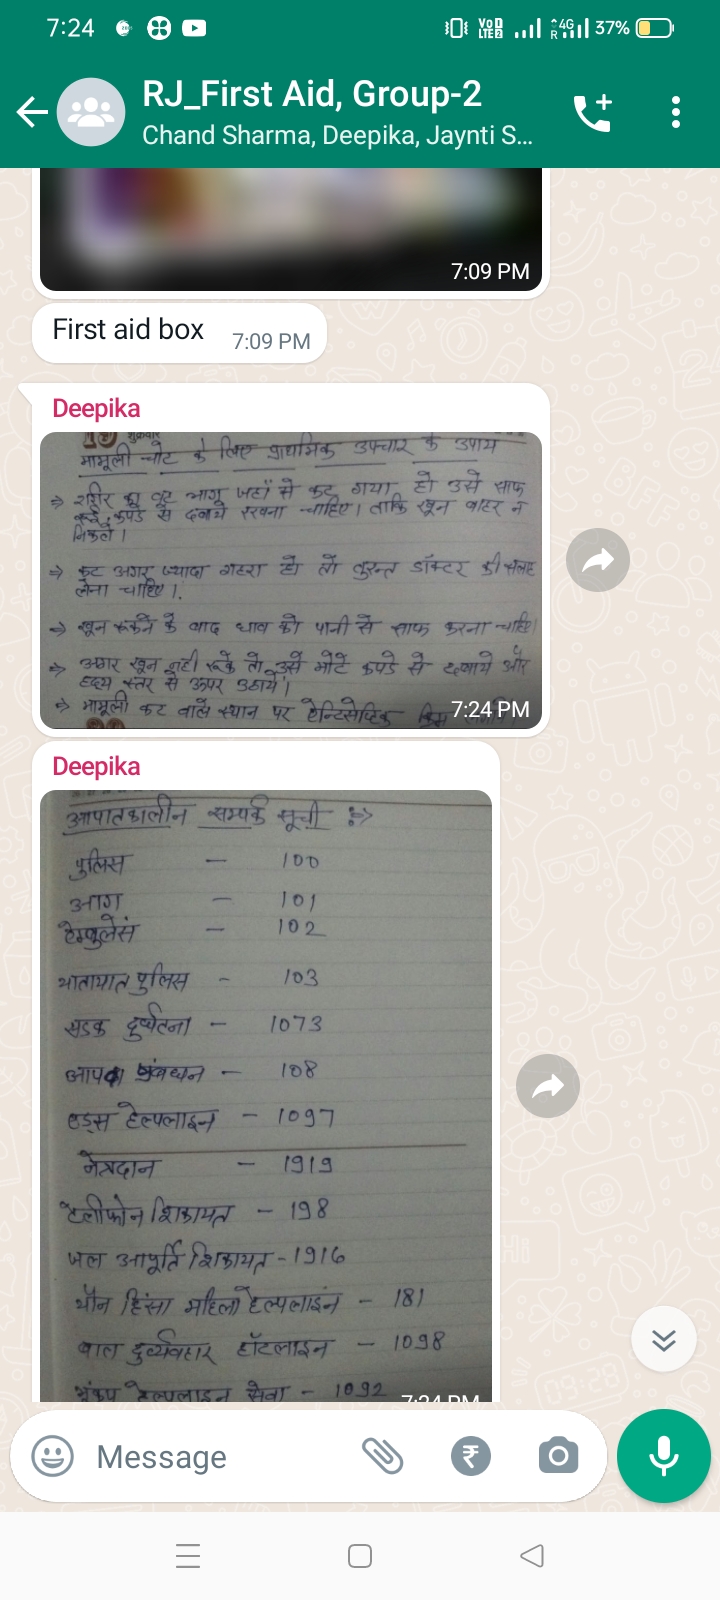 7:24
Vo 1 LTE 2
4G
R
37%
RJ_First Aid, Group-2
Chand Sharma, Deepika, Jaynti S...
7:09 PM
First aid box
7:09 PM
Deepika
शुक्रवार
मामूली चोट के लिए प्राथमिक उपचार के उपाय
⇒ शरीर का वह भाग जहाँ से कट गया हो उसे साफ
कपडे से दबाये रखना चाहिए। ताकि खून बाहर न
निकले।
⇒ कट अगर ज्यादा गहरा हो तो तुरन्त डॉक्टर की सलाह
लेना चाहिए।
⇒ खून रूकने के बाद घाव को पानी से साफ करना चाहिए।
⇒ अगर खून नही रूके तो उसे मोटे कपडे से दबाये और
हृदय स्तर से ऊपर उठाये।
⇒ मामूली कट वाले स्थान पर ऐन्टिसेप्टिक
7:24 PM
Deepika
आपातकालीन सम्पर्क सूची :⇒
पुलिस - 100
आग - 101
ऐम्बुलेंस - 102
यातायात पुलिस - 103
सडक दुर्घटना - 1073
आपदा प्रंबधन - 108
एड्स हेल्पलाइन - 1097
नेत्रदान - 1919
टेलीफोन शिकायत - 198
जल आपूर्ति शिकायत - 1916
यौन हिंसा महिला हेल्पलाइन - 181
बाल दुर्व्यवहार हॉटलाइन - 1098
भूंकप हेल्पलाइन सेवा - 1092
7:24 PM
Message